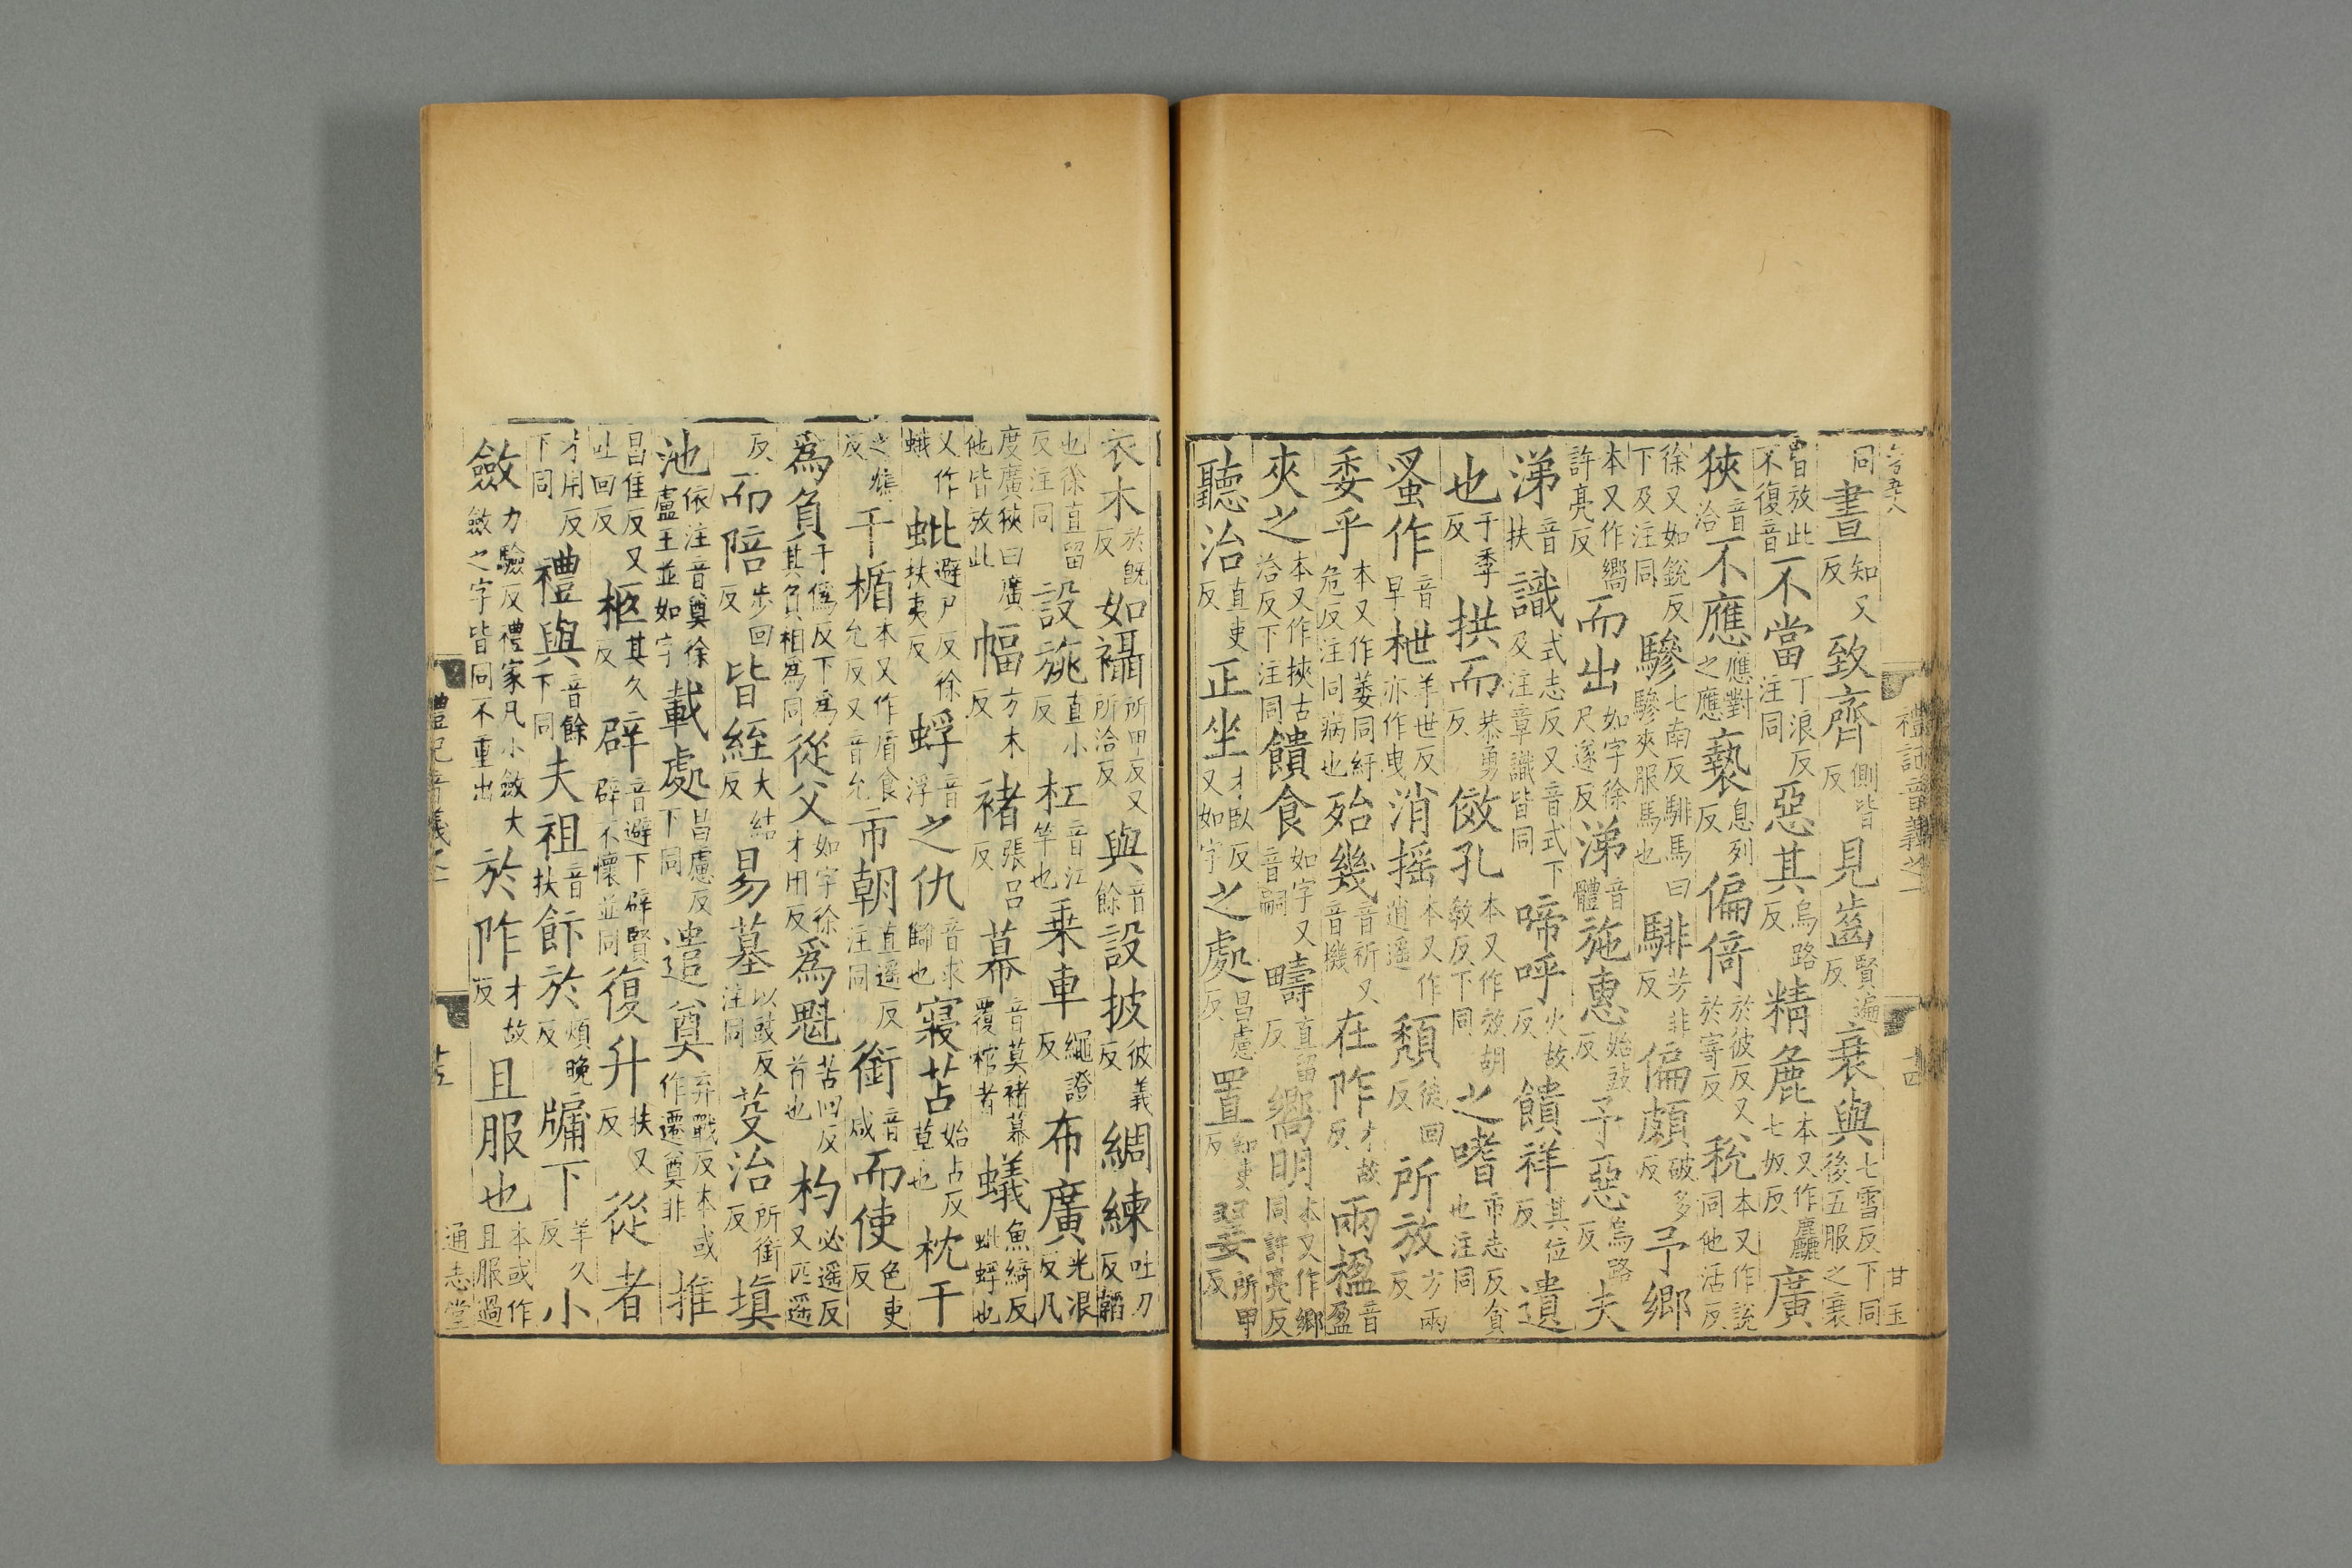 禮記音義之一 十四 甘玉
同晝知又反致齊側皆反見齒賢遍反衰與七雷反下同後五服之衰
皆放此不復音不當丁浪反注同惡其烏路反精麄本又作麤七奴反廣
狹音洽不應應對之應褻息列反偏倚於彼反又於寄反稅本又作說同他活反
徐又如銳反下及注同驂七南反騑馬曰驂夾服馬也騑芳非反偏頗破多反予鄉
本又作嚮許亮反而出如字徐尺遂反涕音體施惠始豉反予惡烏路反夫
涕音扶識式志反又音式下及注章識皆同啼呼火故反饋祥其位反遺
也于季反拱而恭勇反傚孔本又作效胡教反下同之嗜市志反貪也注同
蚤作音早枻羊世反亦作曳消摇本又作逍遥頹徒回反所放方兩反
委乎本又作萎同紆危反注同病也殆幾音祈又音機在阼才故反兩楹音盈
夾之本又作挾古洽反下注同饋食如字又音嗣疇直留反嚮明本又作鄉同許亮反
聽治直吏反正坐才臥反又如字之處昌慮反置知吏反翣所甲反
衣木於旣反如襵所甲反又所洽反與音餘設披彼義反綢練吐刀反韜
也徐直留反注同設旐直小反杠音江竿也乗車繩證反布廣光浪反凡
度廣狹曰廣他皆放此幅方木反褚張呂反幕音莫褚幕覆棺者蟻魚綺反蚍蜉也
又作蛾蚍避尸反徐扶夷反蜉音浮之仇音求讎也寢苫始占反草也枕干
之鴆反干楯本又作盾食允反又音允市朝直遥反注同銜音咸而使色吏反
爲負于僞反下爲其負相爲同從父如字徐才用反爲魁苦回反首也杓必遥反又匹遥
反而陪步回反皆絰大結反易墓以豉反注同芟治所銜反塡
池依注音奠徐盧王並如字載處昌慮反下同遣奠弃戰反本或作遷奠非推
昌隹反又吐回反柩其久反辟音避下辟賢辟不懷並同復升扶又反從者
才用反下同禮與音餘下同夫祖音扶飰於煩晚反牖下羊久反小
斂力驗反禮家凡小斂大斂之字皆同不重出於阼才故反且服也本或作且服過
禮記音義之一 十五 通志堂